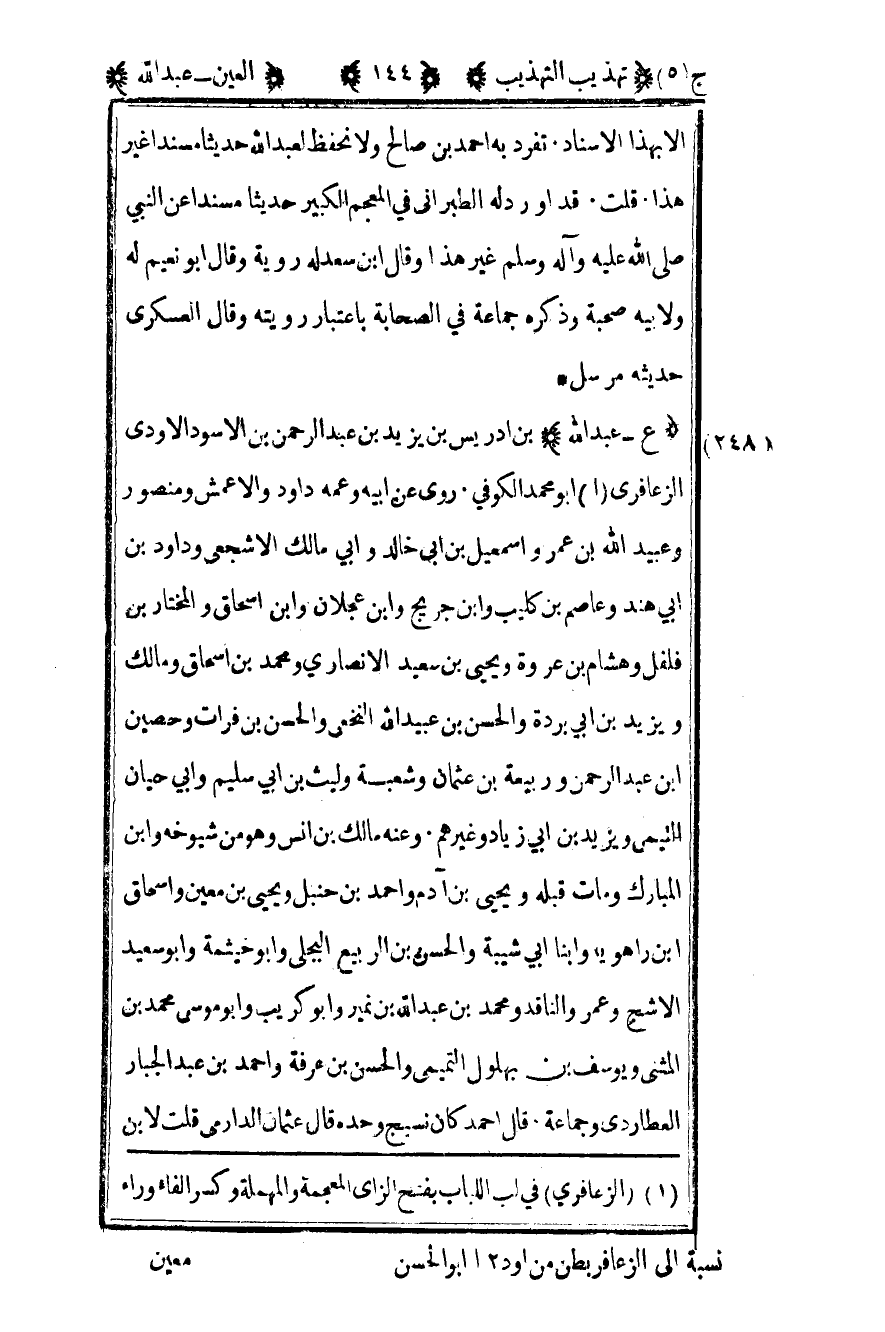 ج(٥) تهذيب التهذيب ١٤٤ العين-عبدالله
الا بهذا الاسناد٠ تفرد به احمد بن صالح ولا نحفظ لعبدالله حديثا مسندا غير
هذا٠ قلت٠ قد اورد له الطبرانى في المعجم الكبير حديثا مسندا عن النبي
صلى الله عليه وآله وسلم غير هذا وقال ابن سعد له روية وقال ابو نعيم له
ولابيه صحبة وذكره جماعة في الصحابة باعتبار رويته وقال العسكرى
حديثه مرسل
(٢٤٨) ﴿ ع -عبدالله ﴾ بن ادريس بن يزيد بن عبدالرحمن بن الاسود الاودى
الزعافرى (١) ابو محمد الكوفي٠ روى عن ابيه وعمه داود والاعمش ومنصور
وعبيد الله بن عمر واسمعيل بن ابى خالد وابي مالك الاشجعى وداود بن
ابي هند وعاصم بن كليب وابن جريج وابن عجلان وابن اسحاق والمختار بن
فلفل وهشام بن عروة ويحيى بن سعيد الانصاري ومحمد بن اسحاق ومالك
ويزيد بن ابي بردة والحسن بن عبيدالله النخعى والحسن بن فرات وحصين
ابن عبدالرحمن وربيعة بن عثمان وشعبة وليث بن ابي سليم وابي حيان
التيمى ويزيد بن ابي زياد وغيرهم٠ وعنه مالك بن انس وهو من شيوخه وابن
المبارك ومات قبله ويحيى بن آدم واحمد بن حنبل ويحيى بن معين واسحاق
ابن راهويه وابنا ابي شيبة والحسن بن الربيع البجلى وابو خيثمة وابو سعيد
الاشج وعمرو الناقد ومحمد بن عبدالله بن نمير وابو كريب وابو موسى محمد بن
المثنى ويوسف بن بهلول التميمى والحسن بن عرفة واحمد بن عبدالجبار
العطاردى وجماعة٠ قال احمد كان نسيج وحده قال عثمان الدارمى قلت لابن
(١) (الزعافري) في لب اللباب بفتح الزاى المعجمة والمهملة وكسر الفاء وراء
نسبة الى الزعافر بطن من اود ١٢ ابو الحسن
معين